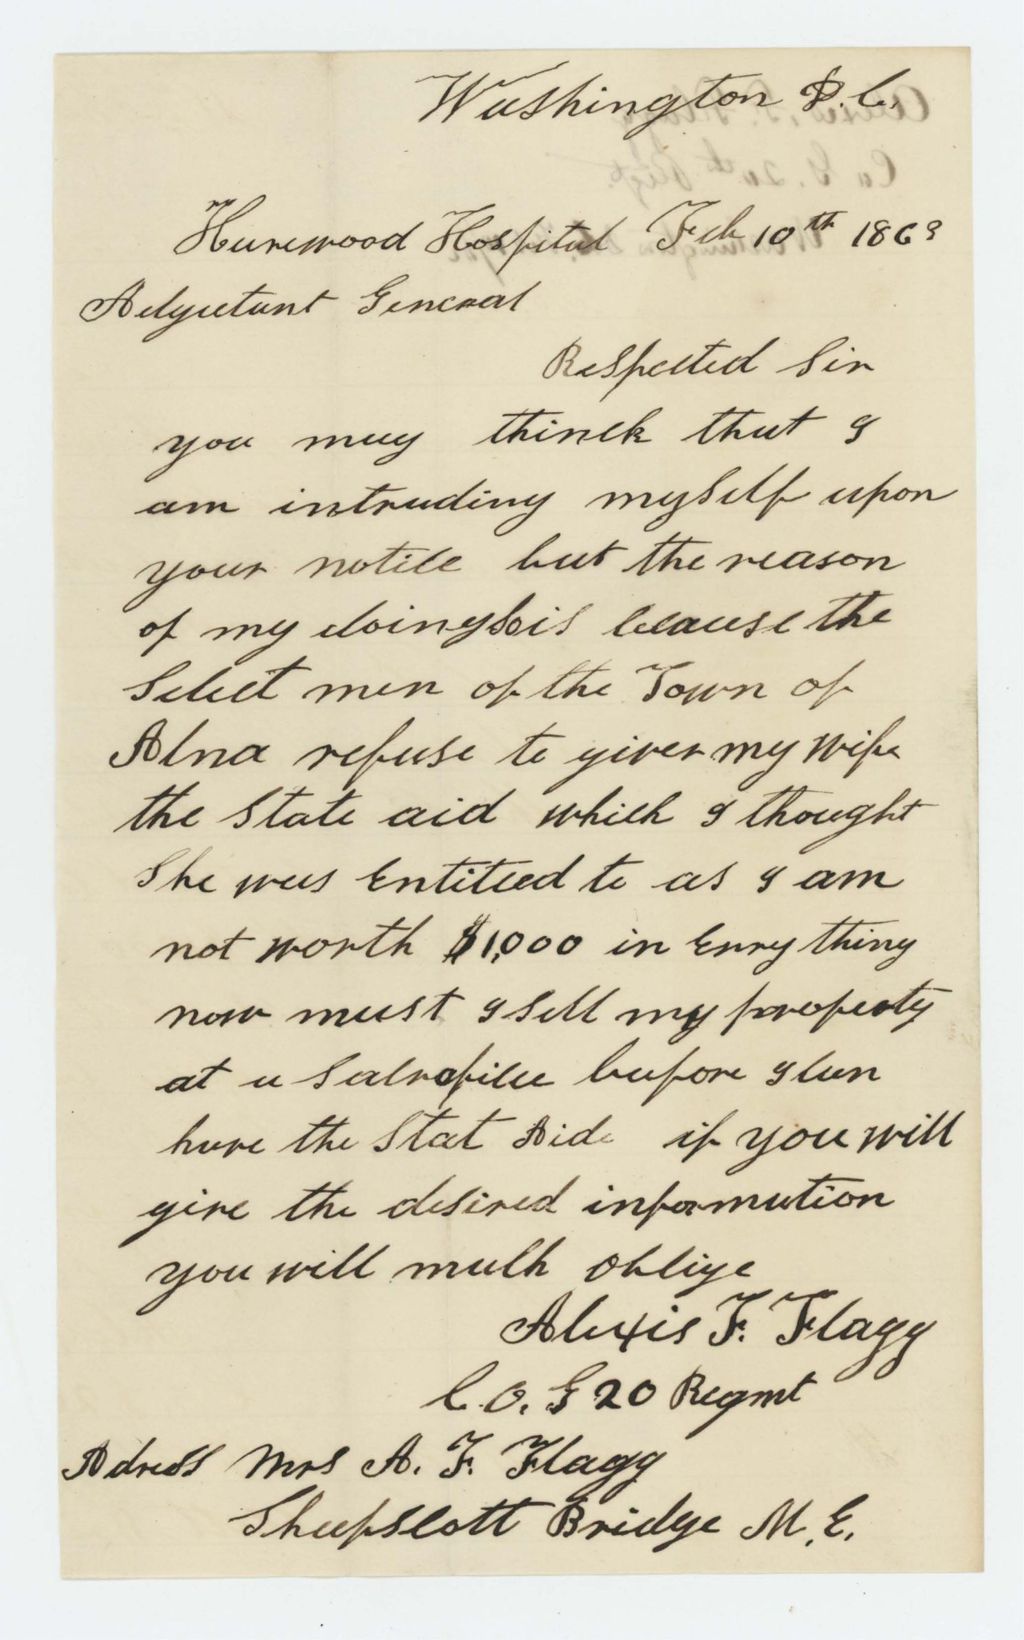 Washington D.C.
Harewood Hospital Feb 10th 1863
Adjutant General
Respected Sir
you may thinck that I
am intruding myself upon
your notice but the reason
of my doing so is because the
Select men of the Town of
Alna refuse to given my wife
the State aid which I thought
She was Entitled to as I am
not worth $1,000 in Evry thing
now must I sell my property
at a Salrafice before I can
have the Stat Aide if you will
give the desired information
you will much oblige
Alexis F. Flagg
C.O. G 20 Regmt
Adress Mrs A. F. Flagg
Sheepscott Bridge M.E.